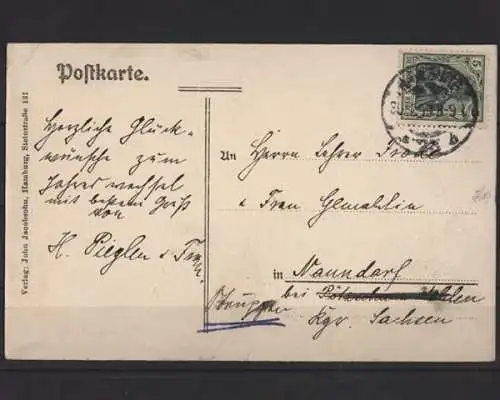 Postkarte.
Verlag: John Jacobsohn, Hamburg, Steinstraße 131
Herzliche Glück-
wünsche zum
Jahreswechsel
mit bestem Gruß
von
H. u. Frau
5
An Herrn Lehrer
u Frau Gemahlin
in Nanndorf
bei
Kgr. Sachsen